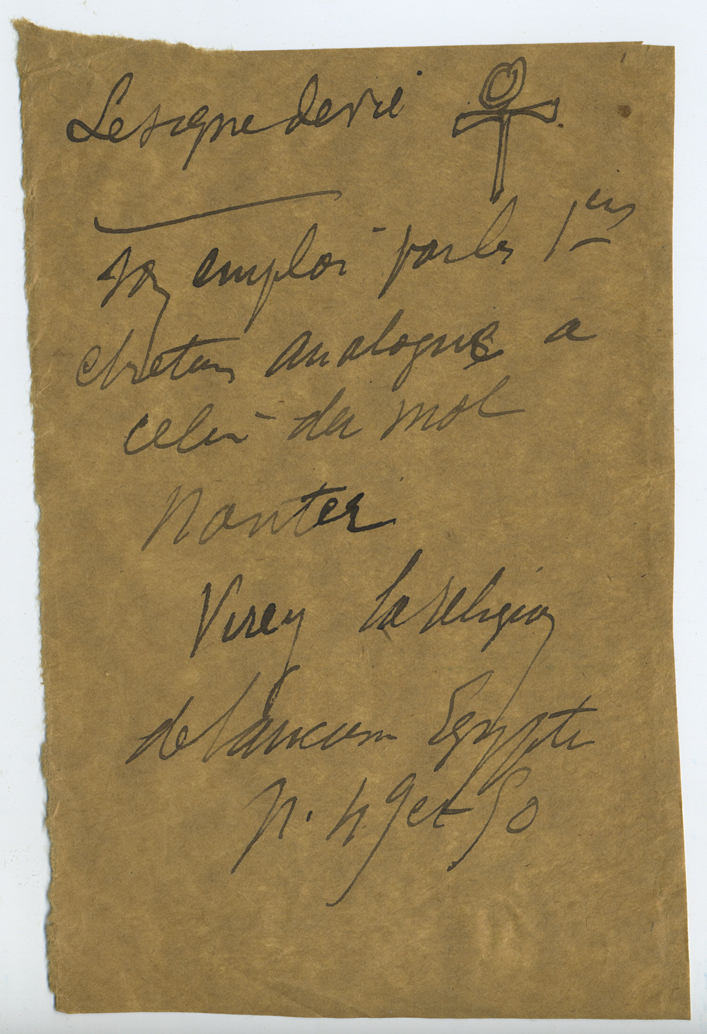 Le signe de vie
son emploi par les 1ers
chretiens analogue a
celui du mot
Nouter
Virey la religion
de l'ancienne Egypte
p. 49 et 50